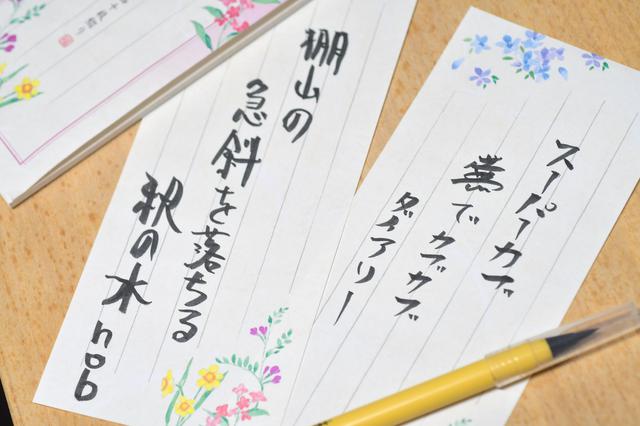 スーパーカブ
でカブカブ
ダイアリー
棚山の
急斜を落ちる
沢の水 nob